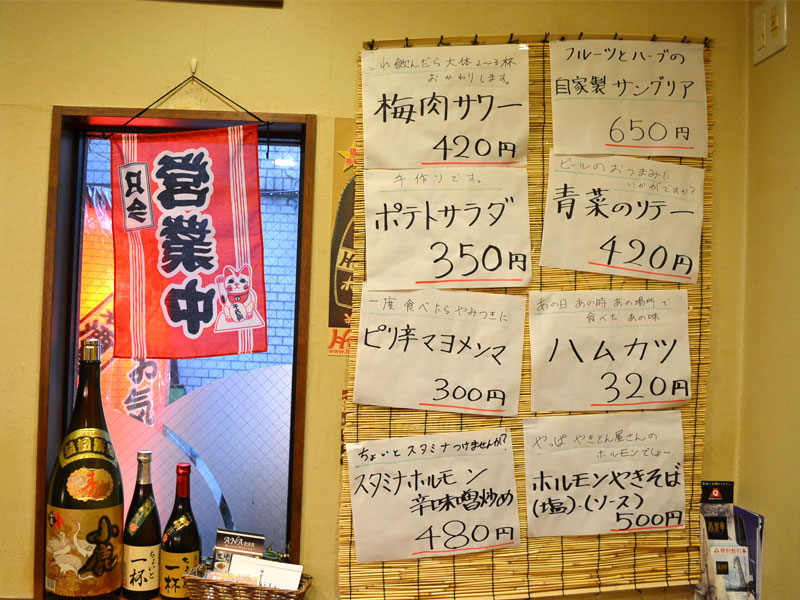 只今
営業中
お気
小鹿
ちょいと
一杯
一杯
ANA
これ飲んだら大体2〜3杯
おかわりします。
梅肉サワー
420円
フルーツとハーブの
自家製サングリア
650円
手作りです。
ポテトサラダ
350円
ビールのおつまみに
いかがですか?
青菜のソテー
420円
一度食べたらやみつきに
ピリ辛マヨメンマ
300円
あの日 あの時 あの場所で
食べた あの味
ハムカツ
320円
ちょいとスタミナつけませんか?
スタミナホルモン
辛味噌炒め
480円
やっぱ やきとん屋さんの
ホルモンでしょ〜
ホルモンやきそば
(塩)・(ソース)
500円